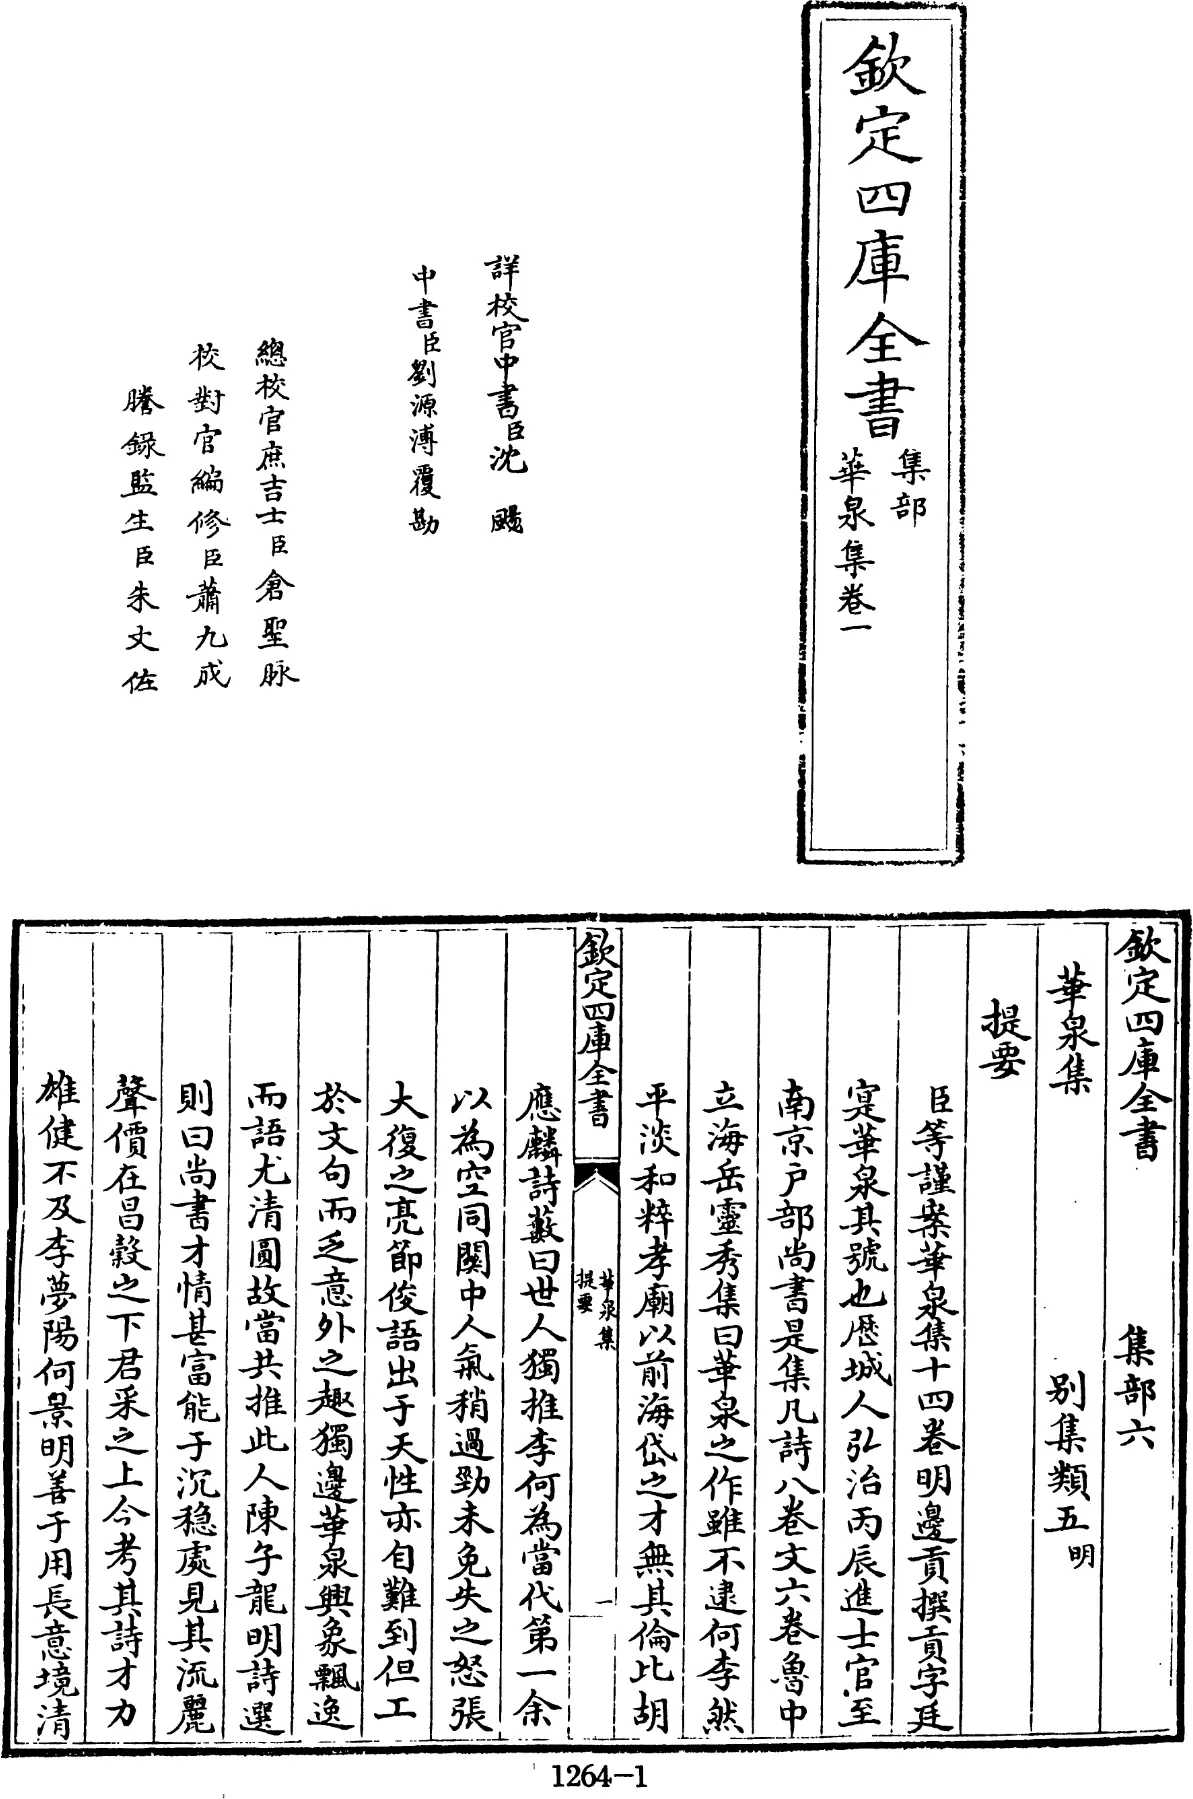 欽定四庫全書
集部
華泉集卷一
詳校官中書臣沈颺
中書臣劉源溥覆勘
總校官庶吉士臣倉聖脉
校對官編修臣蕭九成
謄錄監生臣朱文佐
欽定四庫全書 集部六
華泉集 别集類五明
提要
臣等謹案華泉集十四卷明邊貢撰貢字廷
寔華泉其號也歷城人弘治丙辰進士官至
南京户部尚書是集凡詩八卷文六卷魯中
立海岳靈秀集曰華泉之作雖不逮何李然
平淡和粹孝廟以前海岱之才無其倫比胡
欽定四庫全書
華泉集
提要
一
應麟詩藪曰世人獨推李何為當代第一余
以為空同關中人氣稍過勁未免失之怒張
大復之亮節俊語出于天性亦自難到但工
於文句而乏意外之趣獨邊華泉興象飄逸
而語尤清圓故當共推此人陳子龍明詩選
則曰尚書才情甚富能于沉穏處見其流麗
聲價在昌穀之下君采之上今考其詩才力
雄健不及李夢陽何景明善于用長意境清
1264-1